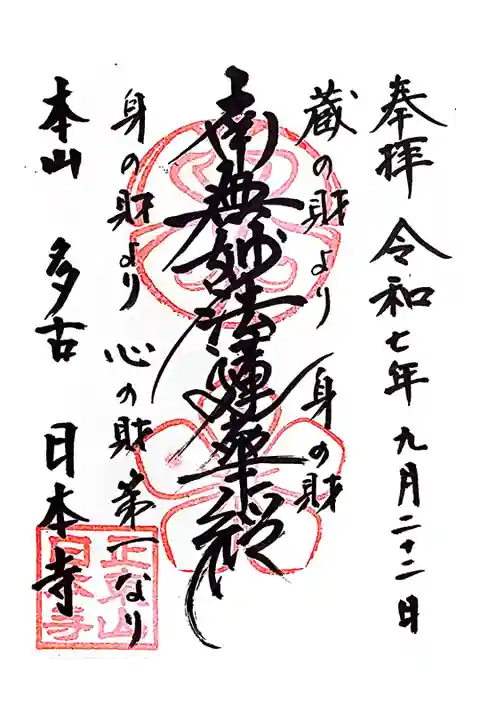 奉拝 令和七年 九月二十二日
蔵の財より 身の財
南無妙法蓮華経
身の財より 心の財 第一なり
本山 多古 日本寺
正東山
日本寺